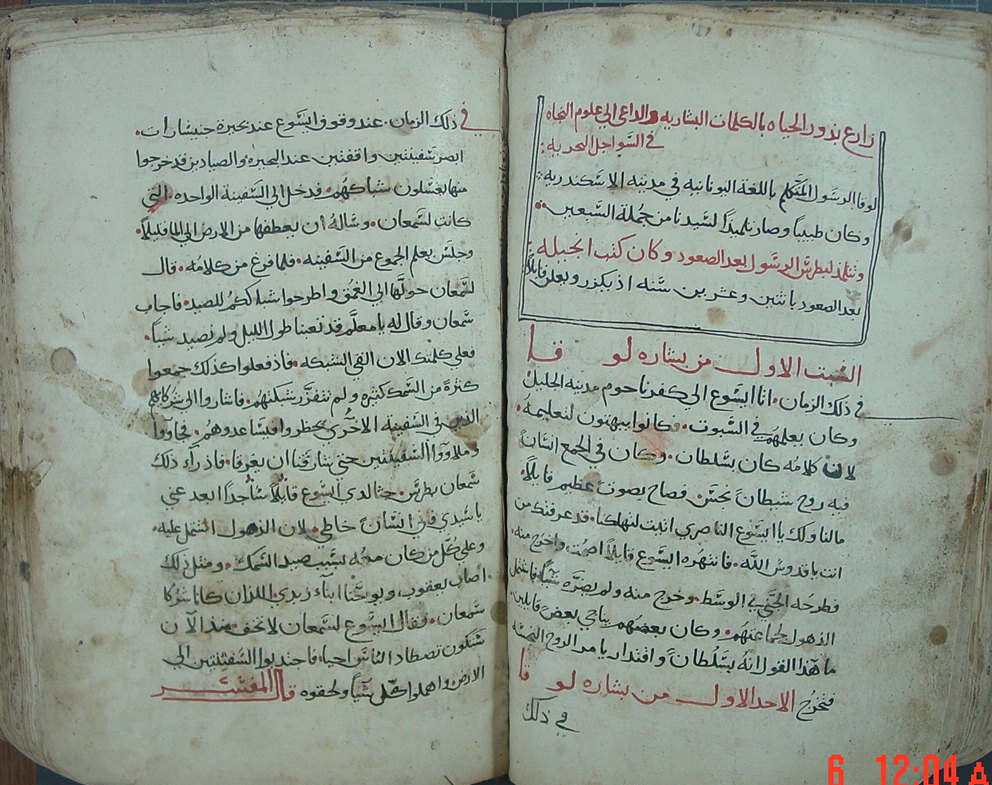 زارع بذور الحياه بالكلمات البشاريه والداعي الى علوم النجاه
في السواحل البحريه:
لوقا الرسول المتكلم باللغة اليونانيه في مدينه الاسكندريه:
وكان طبيباً وصار تلميذاً لسيدنا من جملة السبعين.
وتتلمذ لبطرس الرسول بعد الصعود وكان كتب انجيله
بعد الصعود باثنين وعشرين سنه اذ يكرز ويعلن قايلاً
السبت الاول من بشاره لوقا
في ذلك الزمان. اتا ايسوع الى كفرناحوم مدينه الجليل
وكان يعلمهم في السبوت. وكانوا يبهتون لتعليمه.
لان كلامه كان بسلطان. وكان في الجمع انسان
فيه روح شيطان نجس فصاح بصوت عظيم قايلاً.
مالنا ولك يا ايسوع الناصري اتيت لتهلكنا. قد عرفتك من
انت يا قدوس الله. فانتهره ايسوع قايلاً اصمت واخرج منه.
فطرحه الجني في الوسط. وخرج منه ولم يضره شياً فاشتمل
الذهول لجماعتهم. وكان بعضهم يناجي بعض قايلين.
ما هذا القول انه بسلطان واقتدار يامر الروح النجسه
فتخرج الاحد الاول من بشاره لوقا
في ذلك
في ذلك الزمان. عند وقوف ايسوع عند بحيرة جنيشارات.
ابصر سفينتين واقفتين عند البحيره والصيادين قد خرجوا
منها يغسلون شباكهم. فدخل الى السفينة الواحده. التي
كانت لسمعان. وساله ان يعطفها من الارض الى الما قليلاً.
وجلس يعلم الجموع من السفينه. فلما فرغ من كلامه. قال
لسمعان حولها الى العمق واطرحوا شباككم للصيد. فاجاب
سمعان وقال له يا معلم قد تعبنا طول الليل ولم نصيد شيا.
فعلى كلمتك الان القي الشبكه. فاذ فعلوا كذلك جمعوا
كثرة من السمك كثيره ولم تتفزر شبكتهم. فاشاروا الى شركاهم
الذين في السفينة الاخرى يحظروا فيساعدوهم. فجاووا
وملاووا السفينتين حتى شارفتا ان يغرقا. فاذ راء ذلك
سمعان بطرس. جثا لدي ايسوع قايلاً ساجداً ابعد عني
يا سيدي فاني انسان خاطي. لان الذهول اشتمل عليه.
وعلى كل من كان معه بسبب صيد السمك. ومثل ذلك
اصاب يعقوب ويوحنا ابناء زبدي. اللذان كانا شركا
سمعان. فقال ايسوع لسمعان لا تخف. منذ الان
ستكون تصطاد الناس احيا. فاجتدبوا السفينتين الى
الارض واهملوا كل شياً ولحقوه قال المفسر
6 12:04